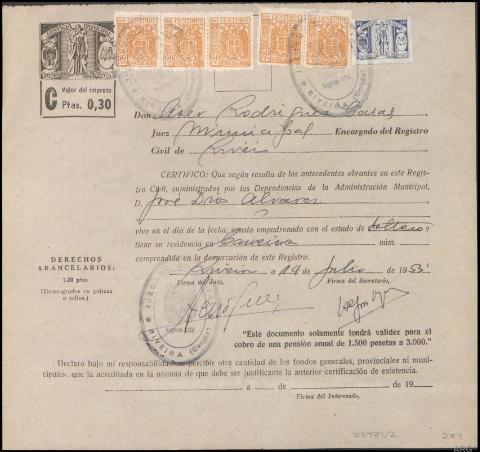 JUSTICIA MUNICIPAL
C Valor del impreso
Ptas. 0,30
50 CENTIMOS 50 CENTIMOS 50 CENTIMOS 50 CENTIMOS 50 CENTIMOS
Don Aser Rodriguez Casas
Juez Municipal Encargado del Registro
Civil de Riveira
CERTIFICO: Que según resulta de los antecedentes obrantes en este Regis-
tro Civil, suministrados por las Dependencias de la Administración Municipal,
D. José Dios Alvarez
vive en el día de la fecha, consta empadronado con el estado de soltero y
tiene su residencia en núm.
comprendida en la demarcación de este Registro.
Riveira a 14 de Julio de 1953
Firma del Juez, Firma del Secretario,
DERECHOS
ARANCELARIOS:
1,20 ptas
(Reintegrados en pólizas
o sellos.)
RIVEIRA (Coruña)
"Este documento solamente tendrá validez para el
cobro de una pensión anual de 1.500 pesetas a 3.000."
Declaro bajo mi responsabilidad no percibir otra cantidad de los fondos generales, provinciales ni muni-
cipales, que la acreditada en la nómina de que debe ser justificante la anterior certificación de existencia.
a de de 19
Firma del Interesado,
284
ARG